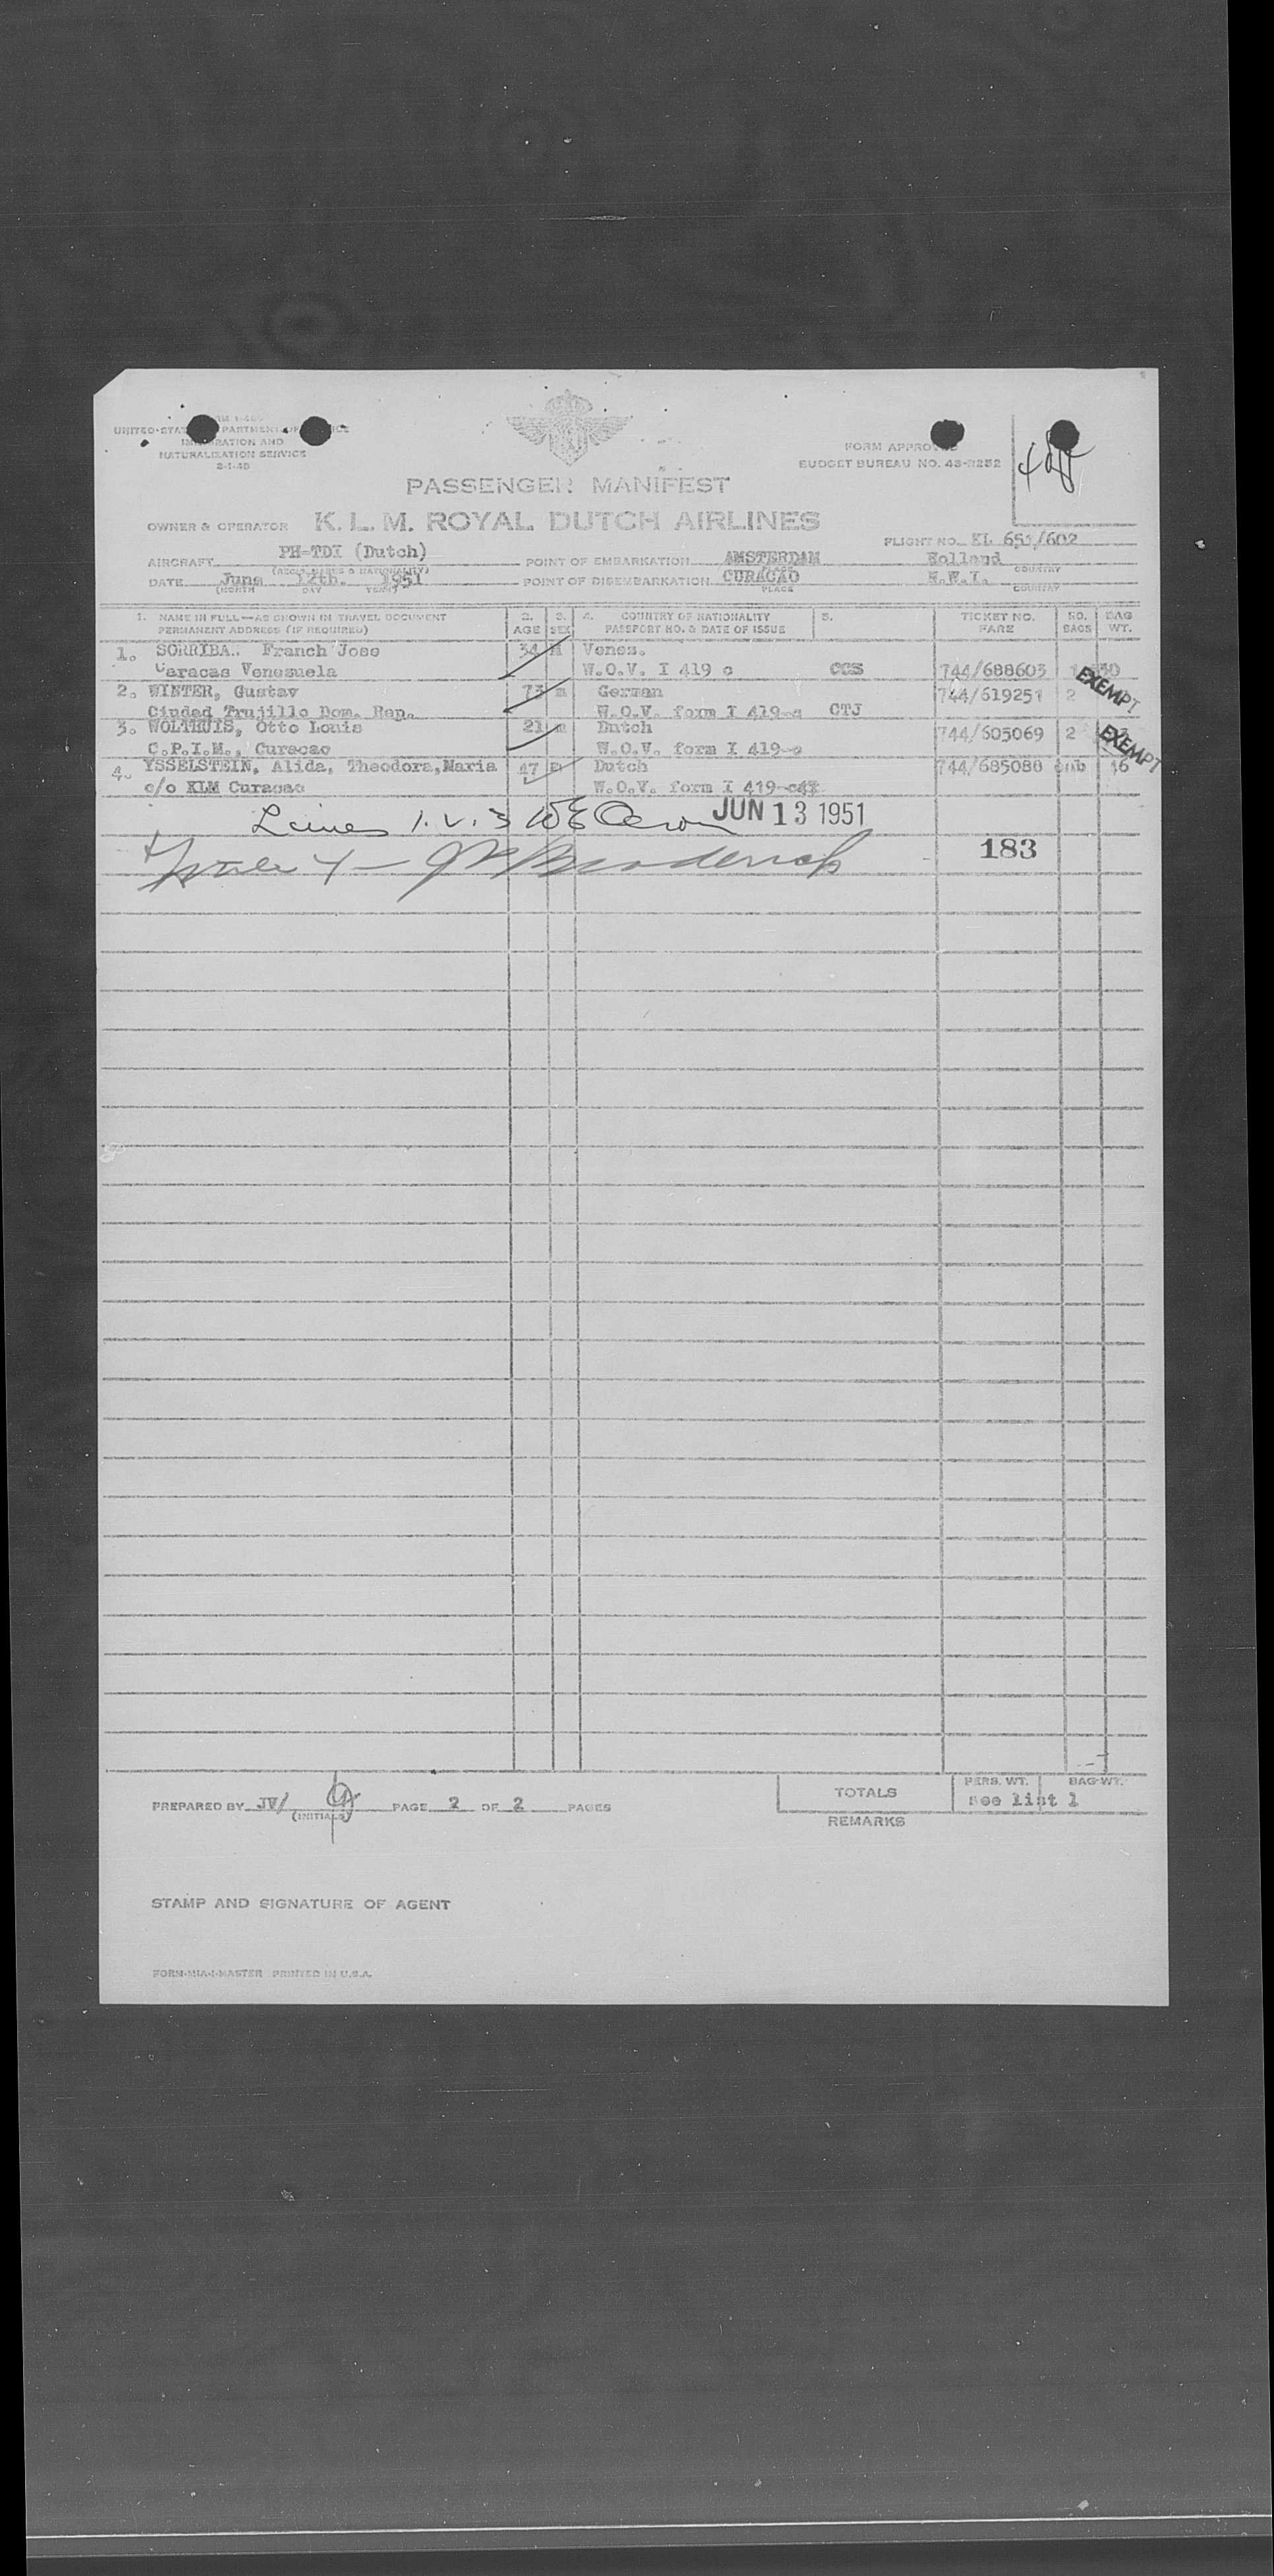 UNITED STATES DEPARTMENT OF JUSTICE
IMMIGRATION AND
NATURALIZATION SERVICE
FORM APPROVED
BUDGET BUREAU NO. 43-R252
PASSENGER MANIFEST
OWNER & OPERATOR K. L. M. ROYAL DUTCH AIRLINES
FLIGHT NO. KL 651/602
AIRCRAFT PH-TDI (Dutch) POINT OF EMBARKATION AMSTERDAM Holland
(REGIS. MARKS & NATIONALITY) PLACE COUNTRY
DATE June 12th. 1951 POINT OF DISEMBARKATION CURACAO N.W.I.
(MONTH DAY YEAR) PLACE COUNTRY
1. NAME IN FULL—AS SHOWN IN TRAVEL DOCUMENT 2. 3. 4. COUNTRY OF NATIONALITY 5. TICKET NO. NO. BAG
PERMANENT ADDRESS (IF REQUIRED) AGE SEX PASSPORT NO. & DATE OF ISSUE FARE BAGS WT.
1. SORRIBA.. Franch Jose 34 M Venes.
Caracas Venesuela W.O.V. I 419 c CCS 744/688603
2. WINTER, Gustav 73 m German 744/619251 2 EXEMPT
Ciudad Trujillo Dom. Rep. W.O.V. form I 419-c CTJ
3. WOLTHUIS, Otto Louis 21 m Dutch 744/605069 2 EXEMPT
C.P.I.M., Curacao W.O.V. form I 419-c
4. YSSELSTEIN, Alida, Theodora,Maria 47 Dutch 744/685088 16
c/o KLM Curacao W.O.V. form I 419-c
Lines 1. v. 3 JUN 13 1951
183
PREPARED BY JV/ PAGE 2 OF 2 PAGES
(INITIALS)
TOTALS PERS. WT. BAG WT.
see list 1
REMARKS
STAMP AND SIGNATURE OF AGENT
FORM-MIA-1-MASTER PRINTED IN U.S.A.